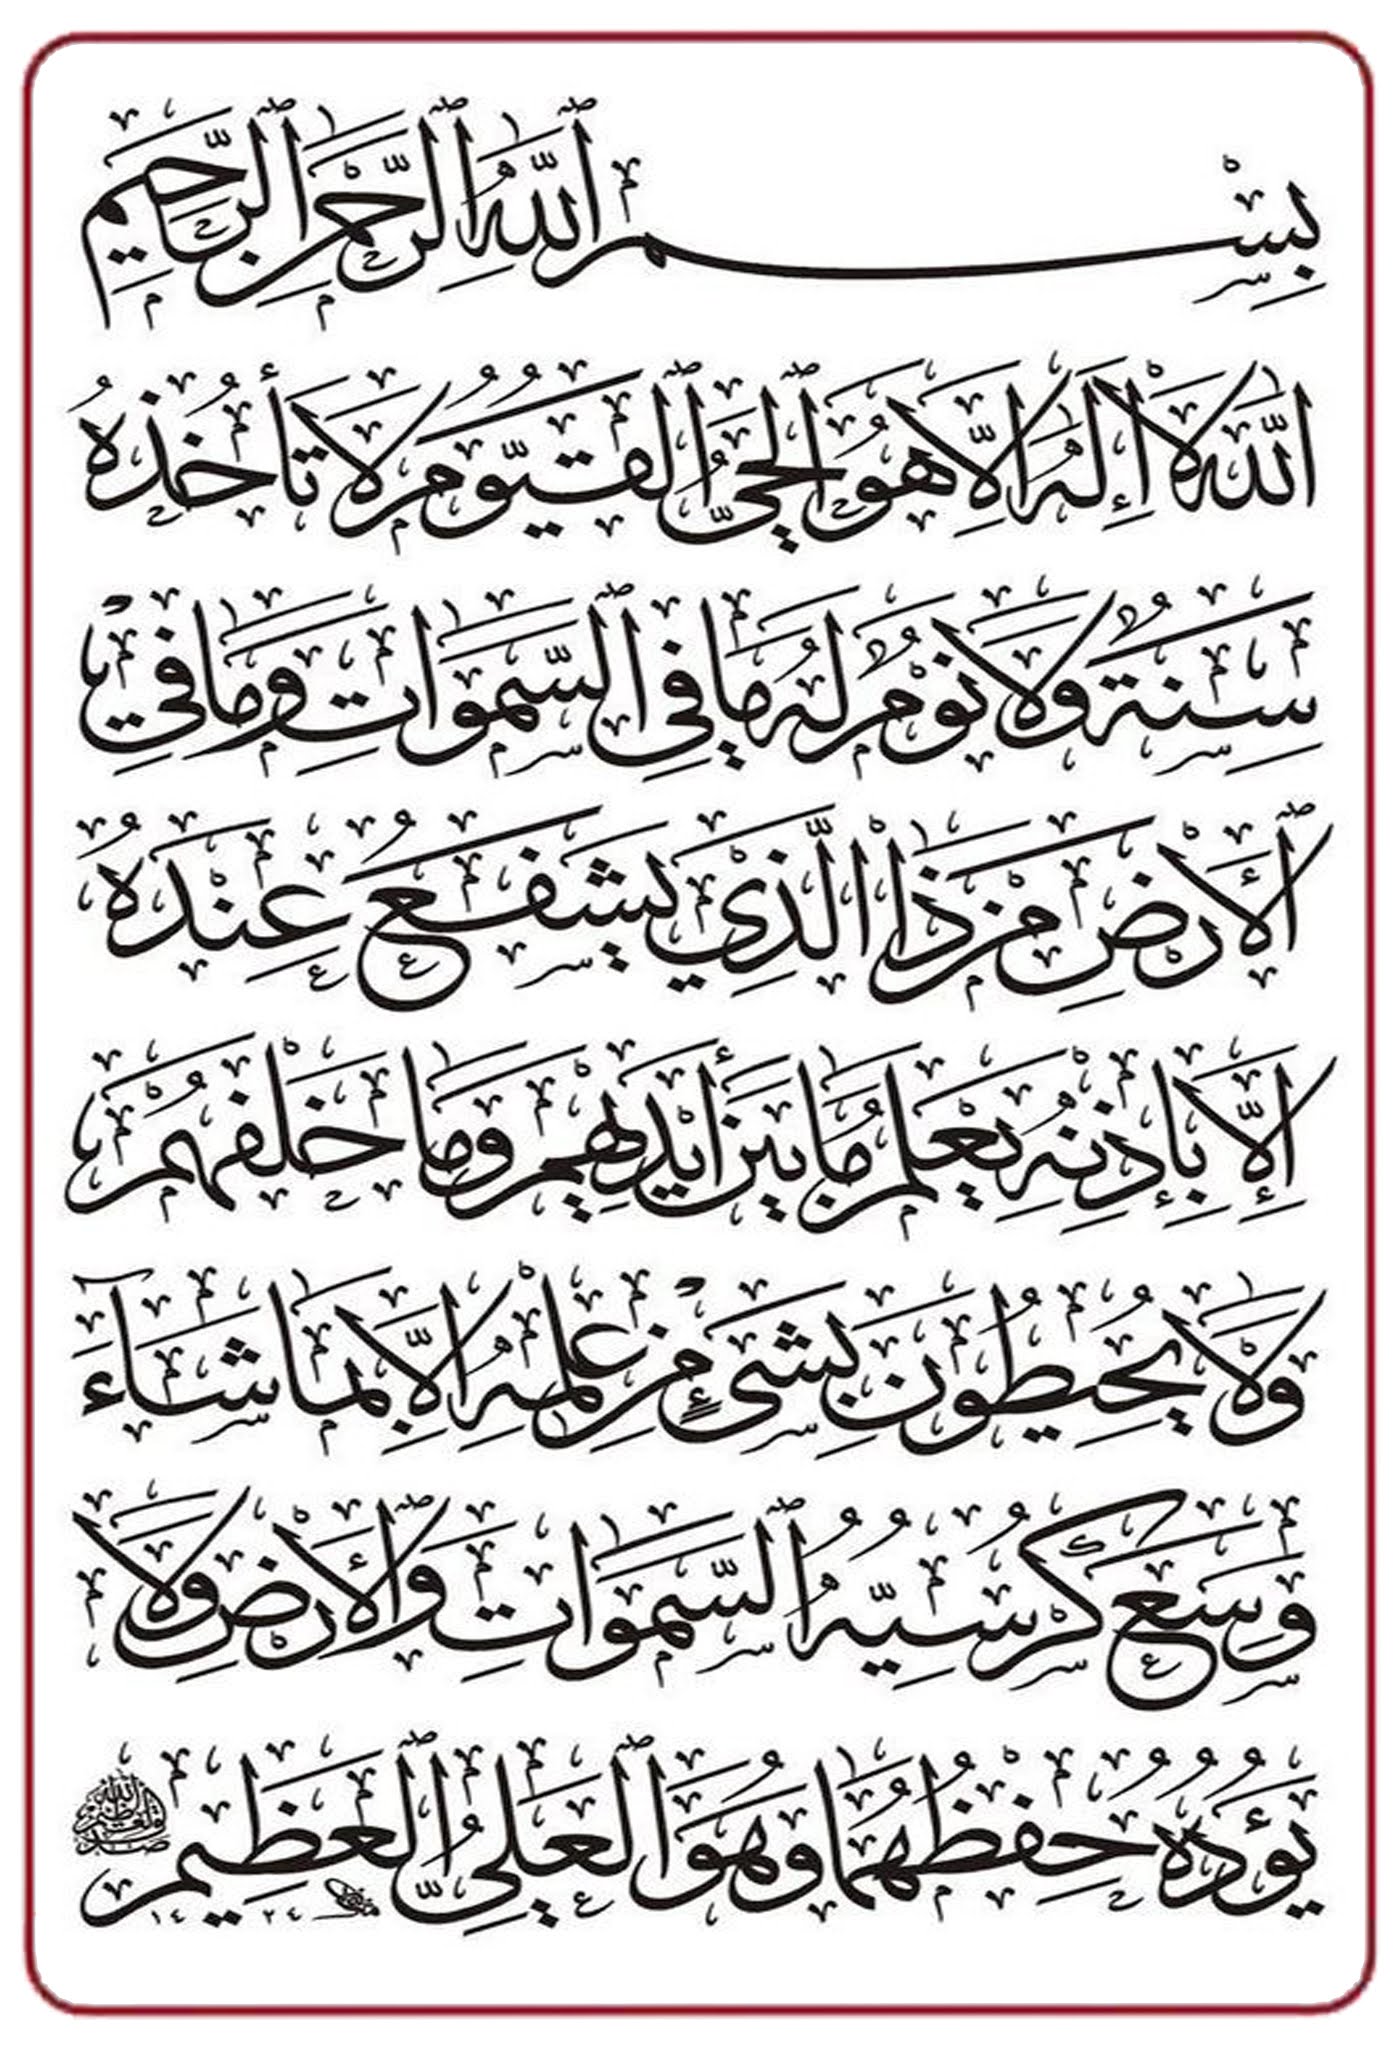 بِسْمِ ٱللّٰهِ ٱلرَّحْمٰنِ ٱلرَّحِيمِ
اللّٰهُ لَا إِلٰهَ إِلَّا هُوَ ٱلْحَيُّ ٱلْقَيُّومُ لَا تَأْخُذُهُ
سِنَةٌ وَلَا نَوْمٌ لَهُ مَا فِي ٱلسَّمٰوَاتِ وَمَا فِي
ٱلْأَرْضِ مَنْ ذَا الَّذِي يَشْفَعُ عِنْدَهُ
إِلَّا بِإِذْنِهِ يَعْلَمُ مَا بَيْنَ أَيْدِيهِمْ وَمَا خَلْفَهُمْ
وَلَا يُحِيطُونَ بِشَيْءٍ مِنْ عِلْمِهِ إِلَّا بِمَا شَاءَ
وَسِعَ كُرْسِيُّهُ ٱلسَّمٰوَاتِ وَٱلْأَرْضَ وَلَا
يَؤُدُهُ حِفْظُهُمَا وَهُوَ ٱلْعَلِيُّ ٱلْعَظِيمُ
صدق الله العظيم
١٤٢٤